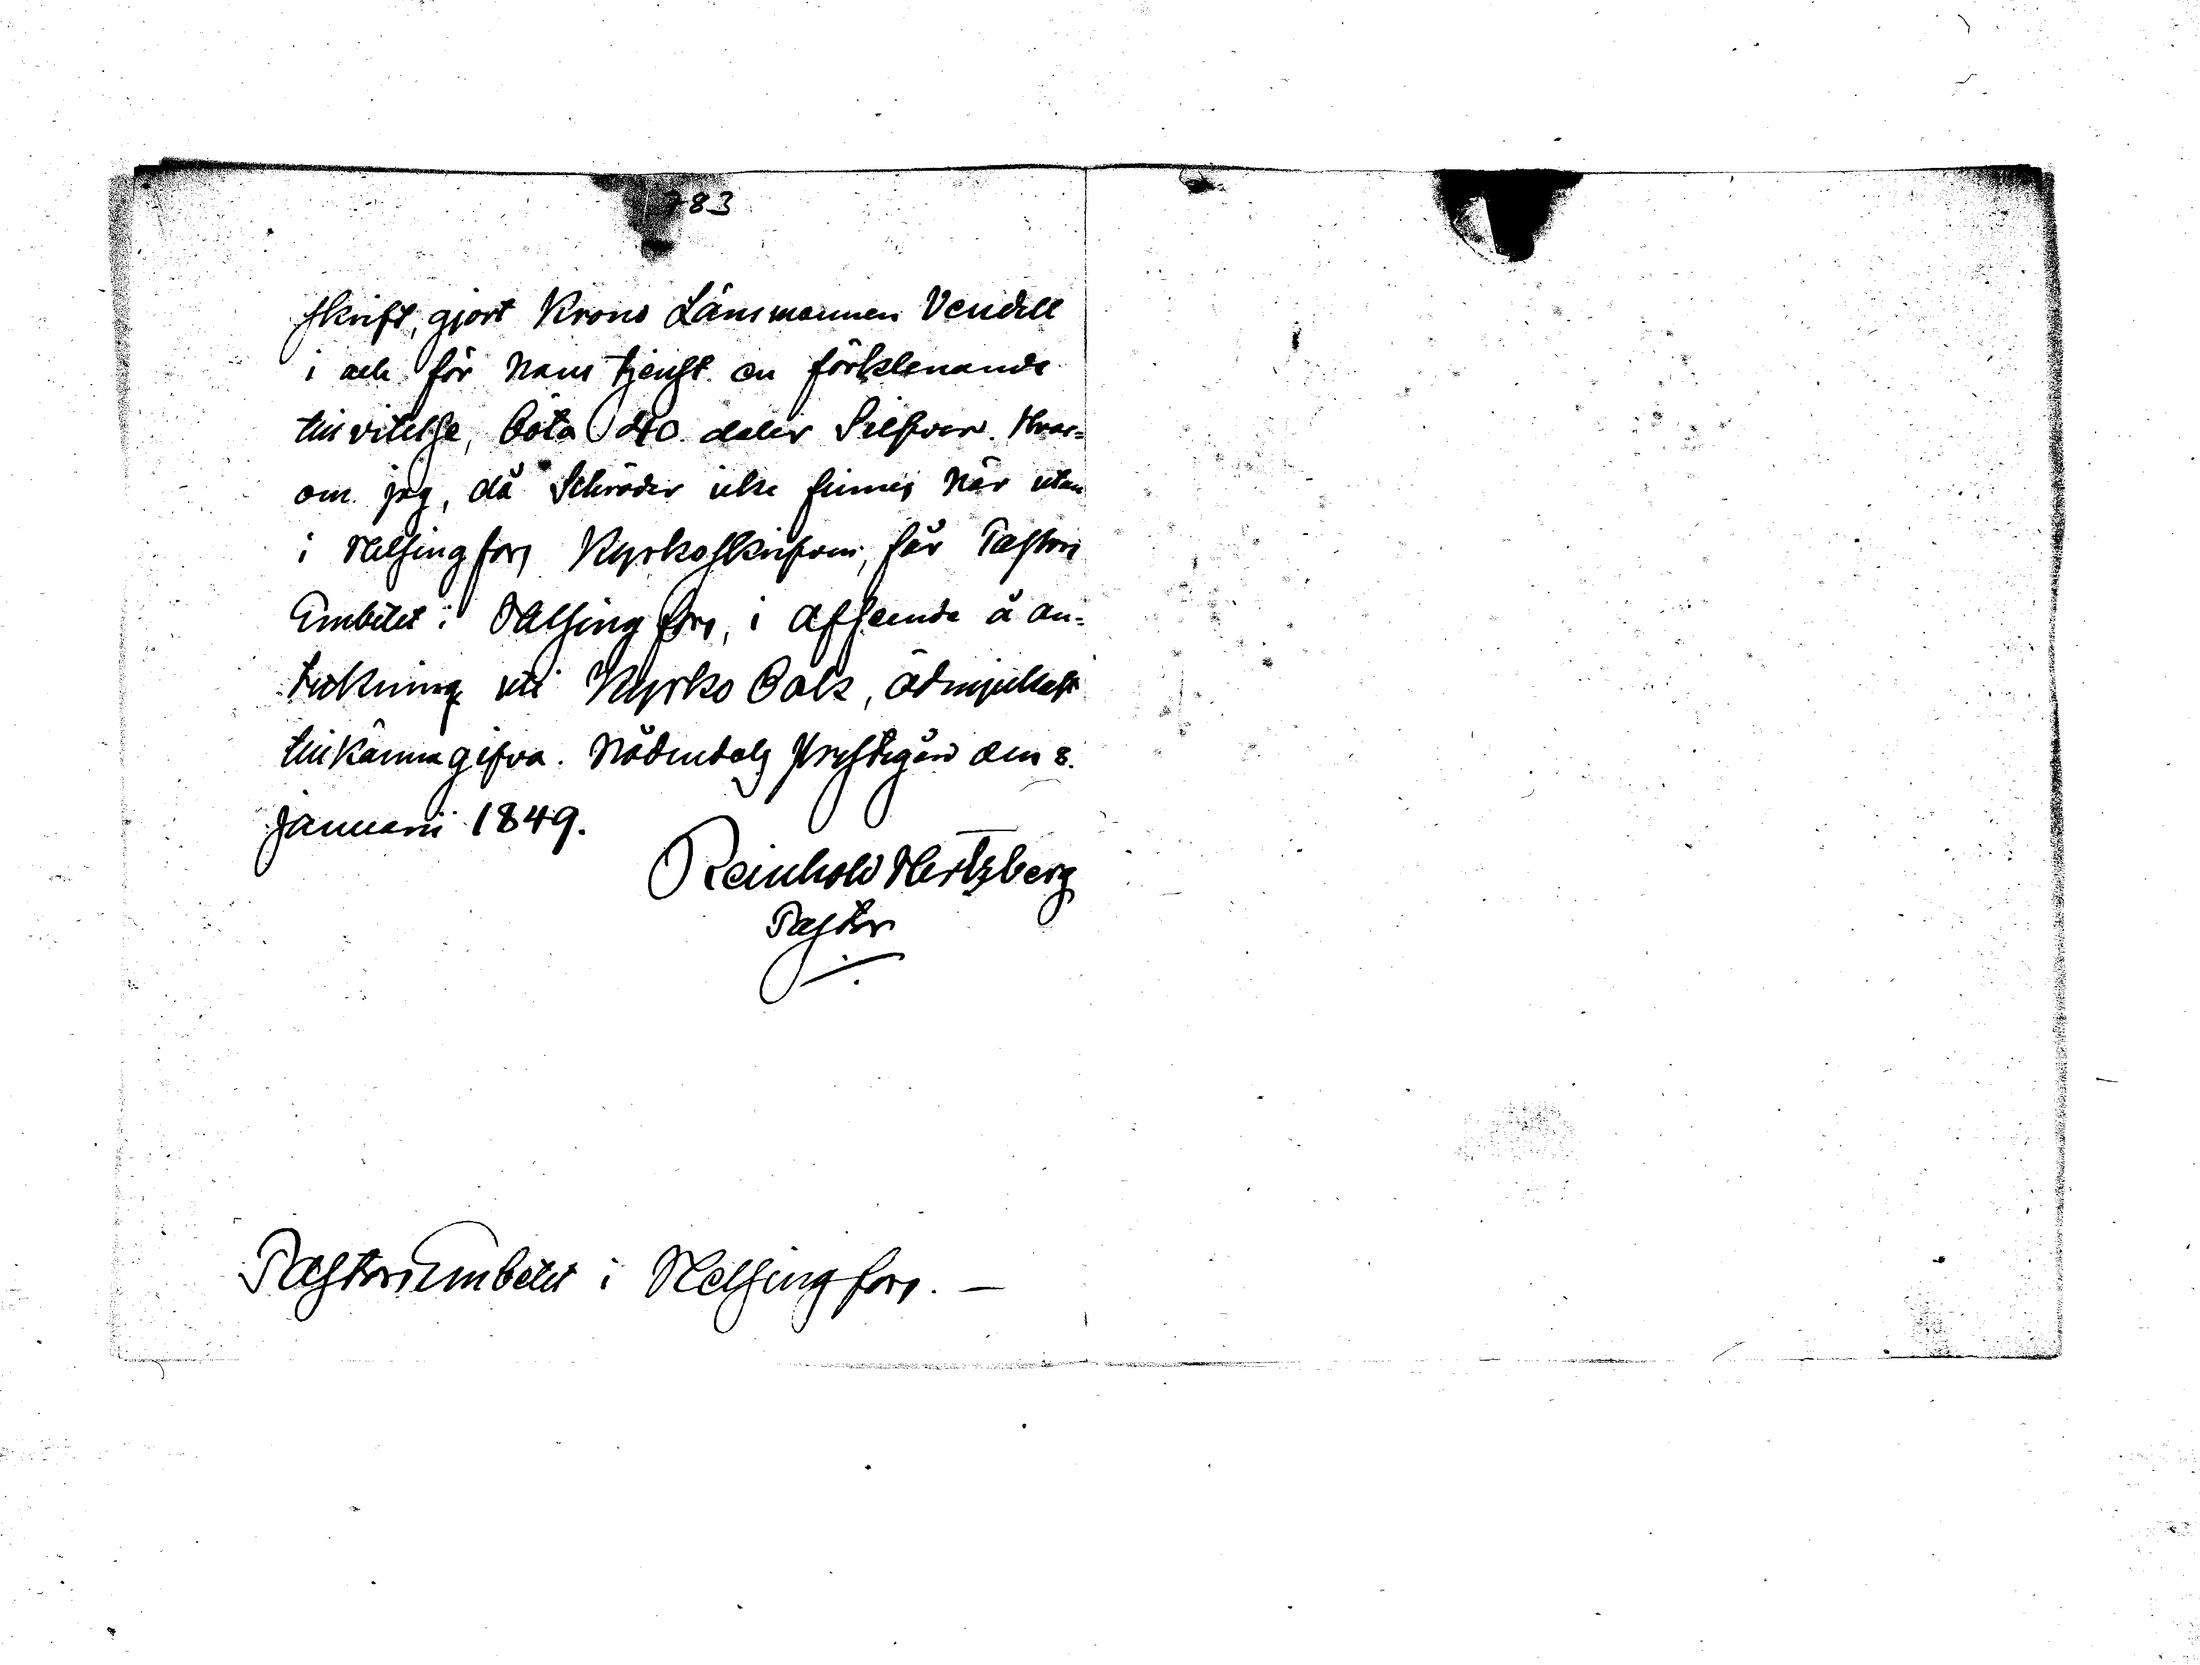 783
skrift, gjort Krono Länsmannen Vendell
i och för hans tjenst en förklenande
tillvitelse, böta 40. daler Silfver. Hvar=
om jag, då Schröder icke finnes här utan
i Helsingfors Kyrkoskrifven, får Pastors
Embetet i Helsingfors, i afseende å an=
teckning uti Kyrko Bok, ödmjukast
tillkännagifva. Nådendals Prestegård den 8.
Januarii 1849.
Reinhold Hertzberg
Pastor
PastorsEmbetet i Helsingfors. —